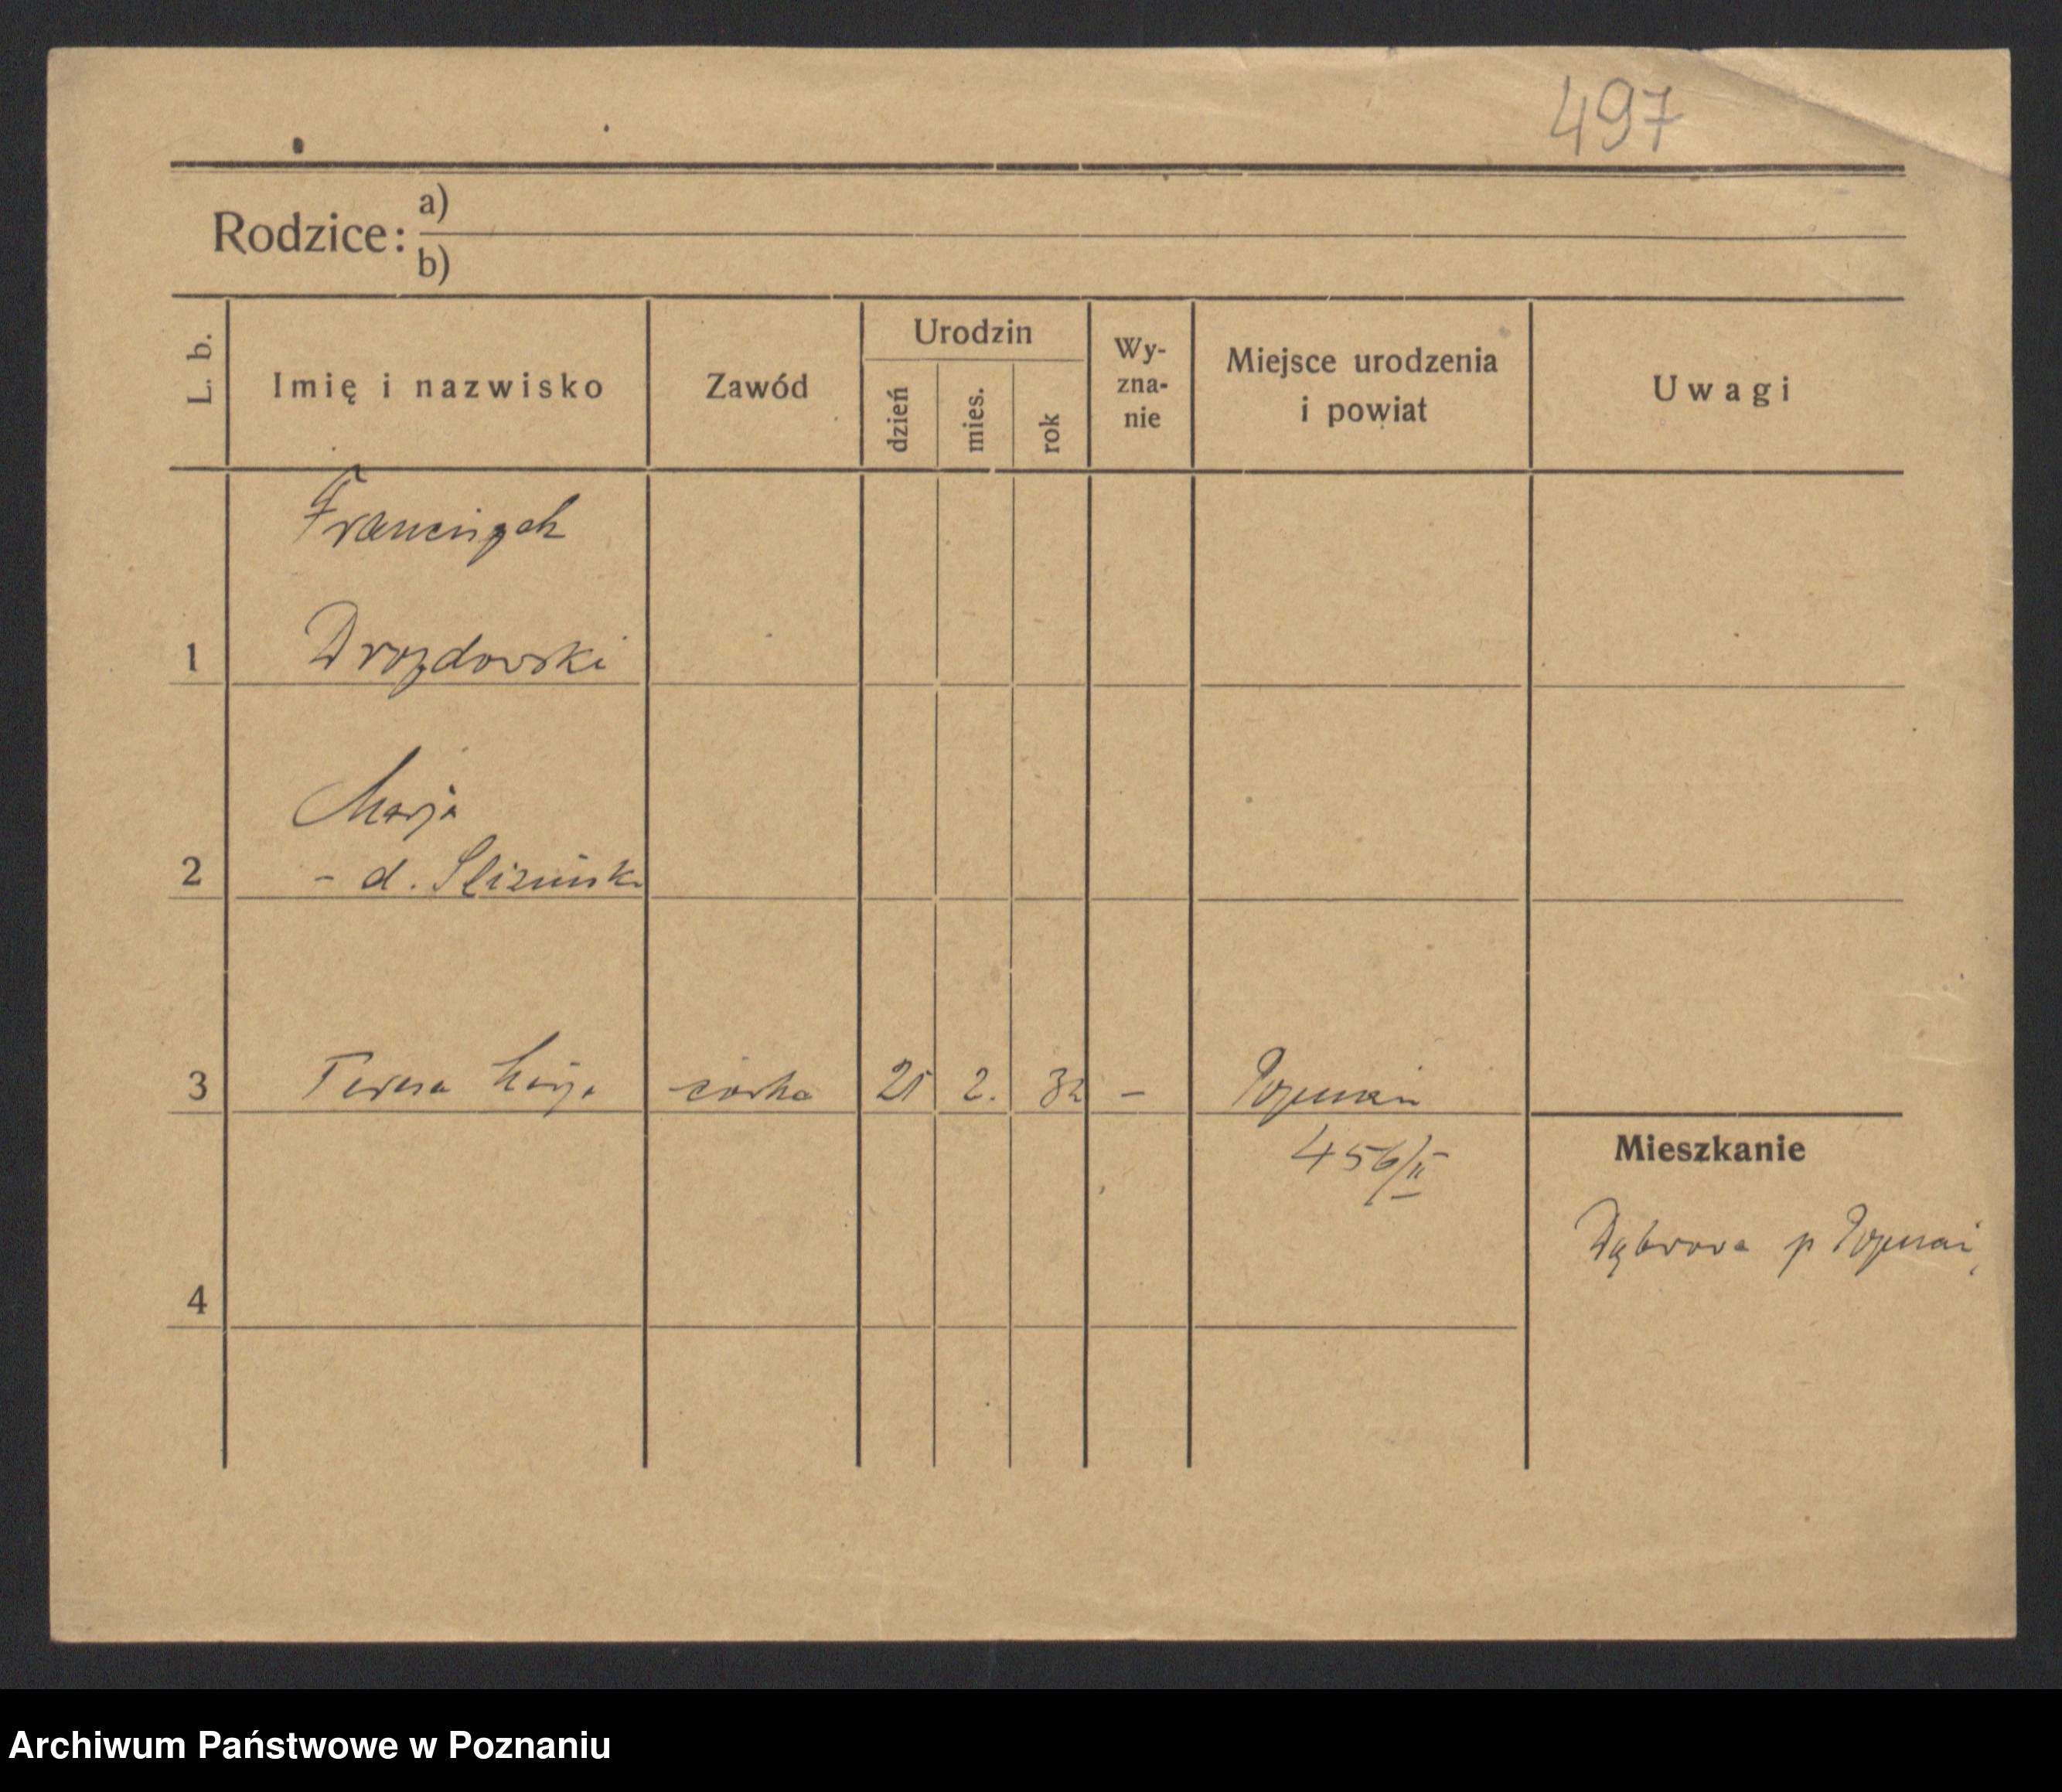 497
Rodzice: a)
b)
L. b.
Imię i nazwisko
Zawód
Urodzin
dzień
mies.
rok
Wy-
zna-
nie
Miejsce urodzenia
i powiat
Uwagi
Franciszek
1 Drozdowski
Marja
2 - d.
3 Teresa córka 2. 32 - Poznań
456/II
Mieszkanie
Dąbrowa p Poznań
4
Archiwum Państwowe w Poznaniu